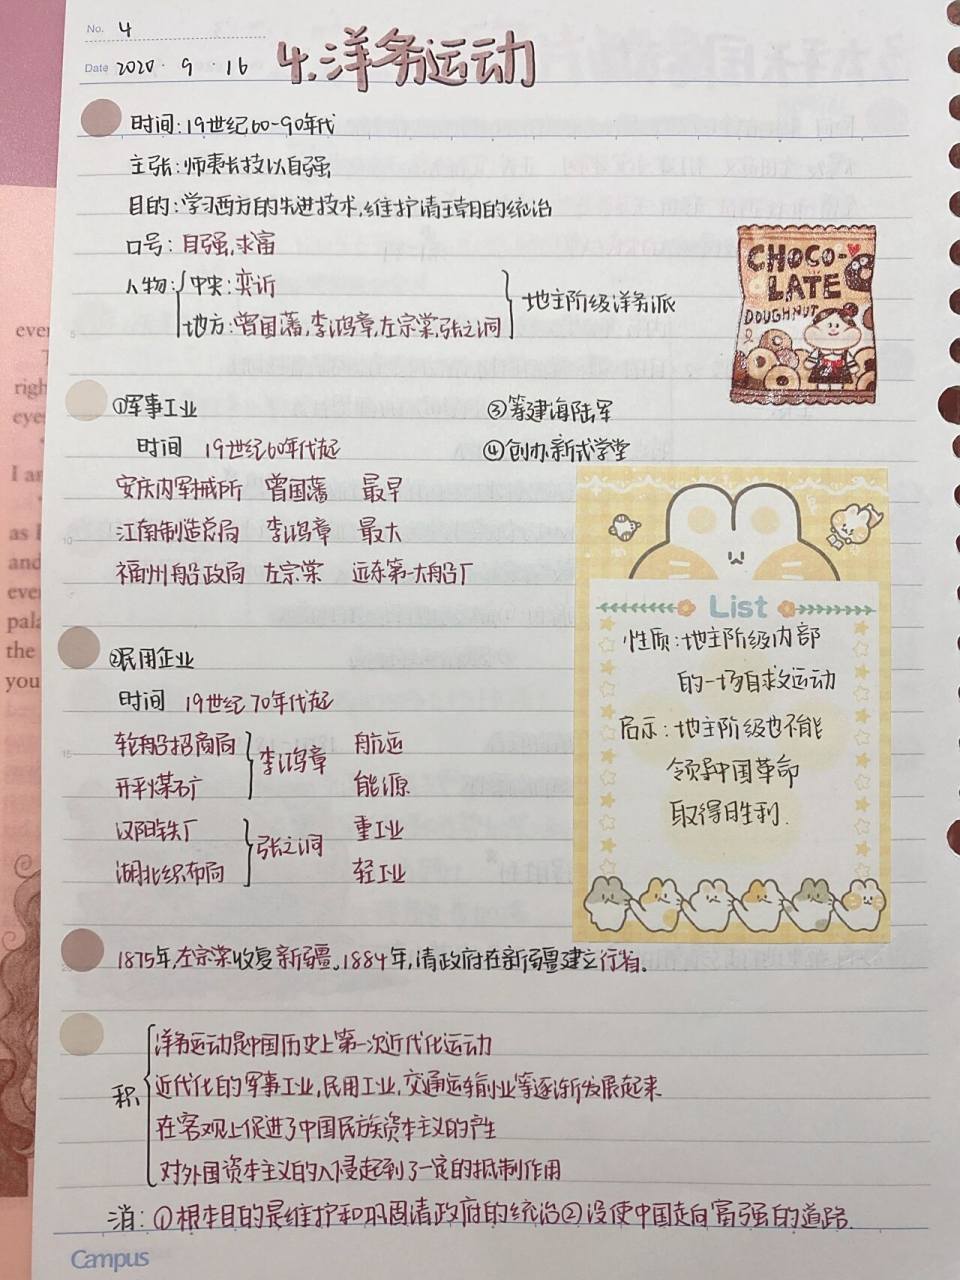 No. 4
Date 2020 · 9 · 16
4.洋务运动
时间:19世纪60-90年代
主张:师夷长技以自强
目的:学习西方的先进技术,维护清王朝的统治
口号:自强,求富
人物:
中央:奕䜣
地方:曾国藩,李鸿章,左宗棠,张之洞
地主阶级洋务派
CHOCO-
LATE
DOUGHNUT
①军事工业
时间 19世纪60年代起
安庆内军械所 曾国藩 最早
江南制造总局 李鸿章 最大
福州船政局 左宗棠 远东第一大船厂
③筹建海陆军
④创办新式学堂
②民用企业
时间 19世纪70年代起
轮船招商局
开平煤矿
李鸿章
航运
能源
汉阳铁厂
湖北织布局
张之洞
重工业
轻工业
List
性质:地主阶级内部
的一场自救运动
启示:地主阶级也不能
领导中国革命
取得胜利.
1875年,左宗棠收复新疆。1884年,清政府在新疆建立行省。
积
洋务运动是中国历史上第一次近代化运动
近代化的军事工业,民用工业,交通运输业等逐渐发展起来
在客观上促进了中国民族资本主义的产生
对外国资本主义的入侵起到了一定的抵制作用
消:①根本目的是维护和巩固清政府的统治②没使中国走向富强的道路.
Campus
ever
righ
eye
I am
as I
and
ever
pala
the
you